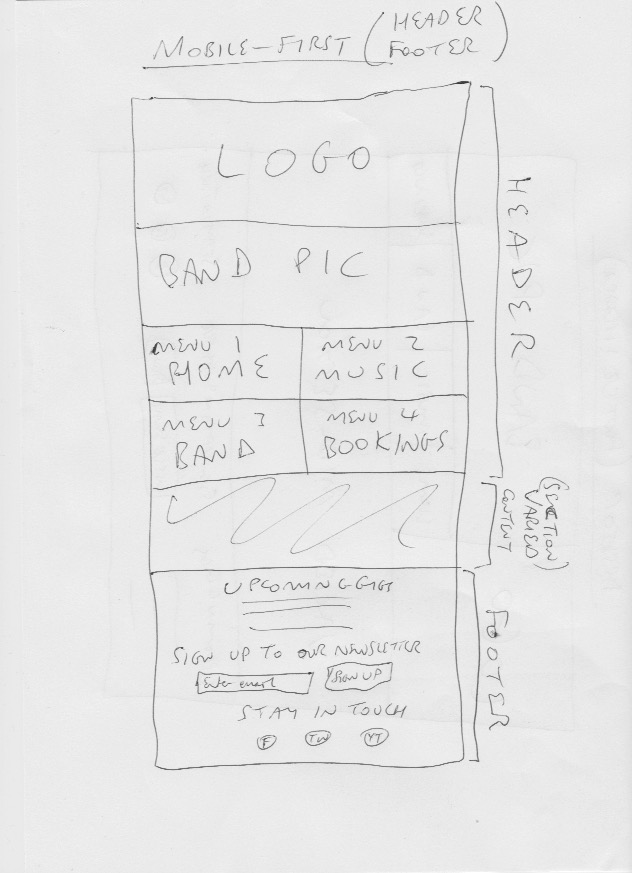 MOBILE-FIRST (HEADER
FOOTER)
LOGO
BAND PIC
MENU 1
HOME
MENU 2
MUSIC
MENU 3
BAND
MENU 4
BOOKINGS
HEADER
(SECTION)
VARIED
CONTENT
UPCOMING GIGS
SIGN UP TO OUR NEWSLETTER
Enter email
SIGN UP
STAY IN TOUCH
F
TW
YT
FOOTER